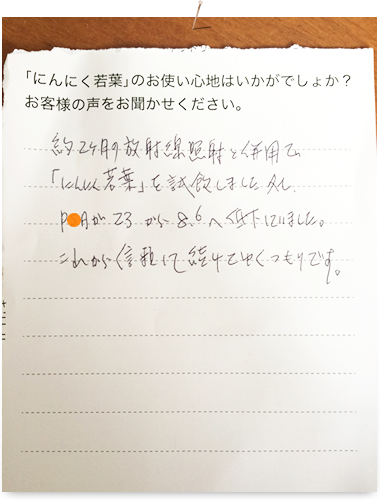 「にんにく若葉」のお使い心地はいかがでしょか？
お客様の声をお聞かせください。
約2ヶ月の放射線照射と併用で
「にんにく若葉」を試飲しました
P Aが 23 から 8.6 へ低下していました。
これから信頼して続けてゆくつもりです。